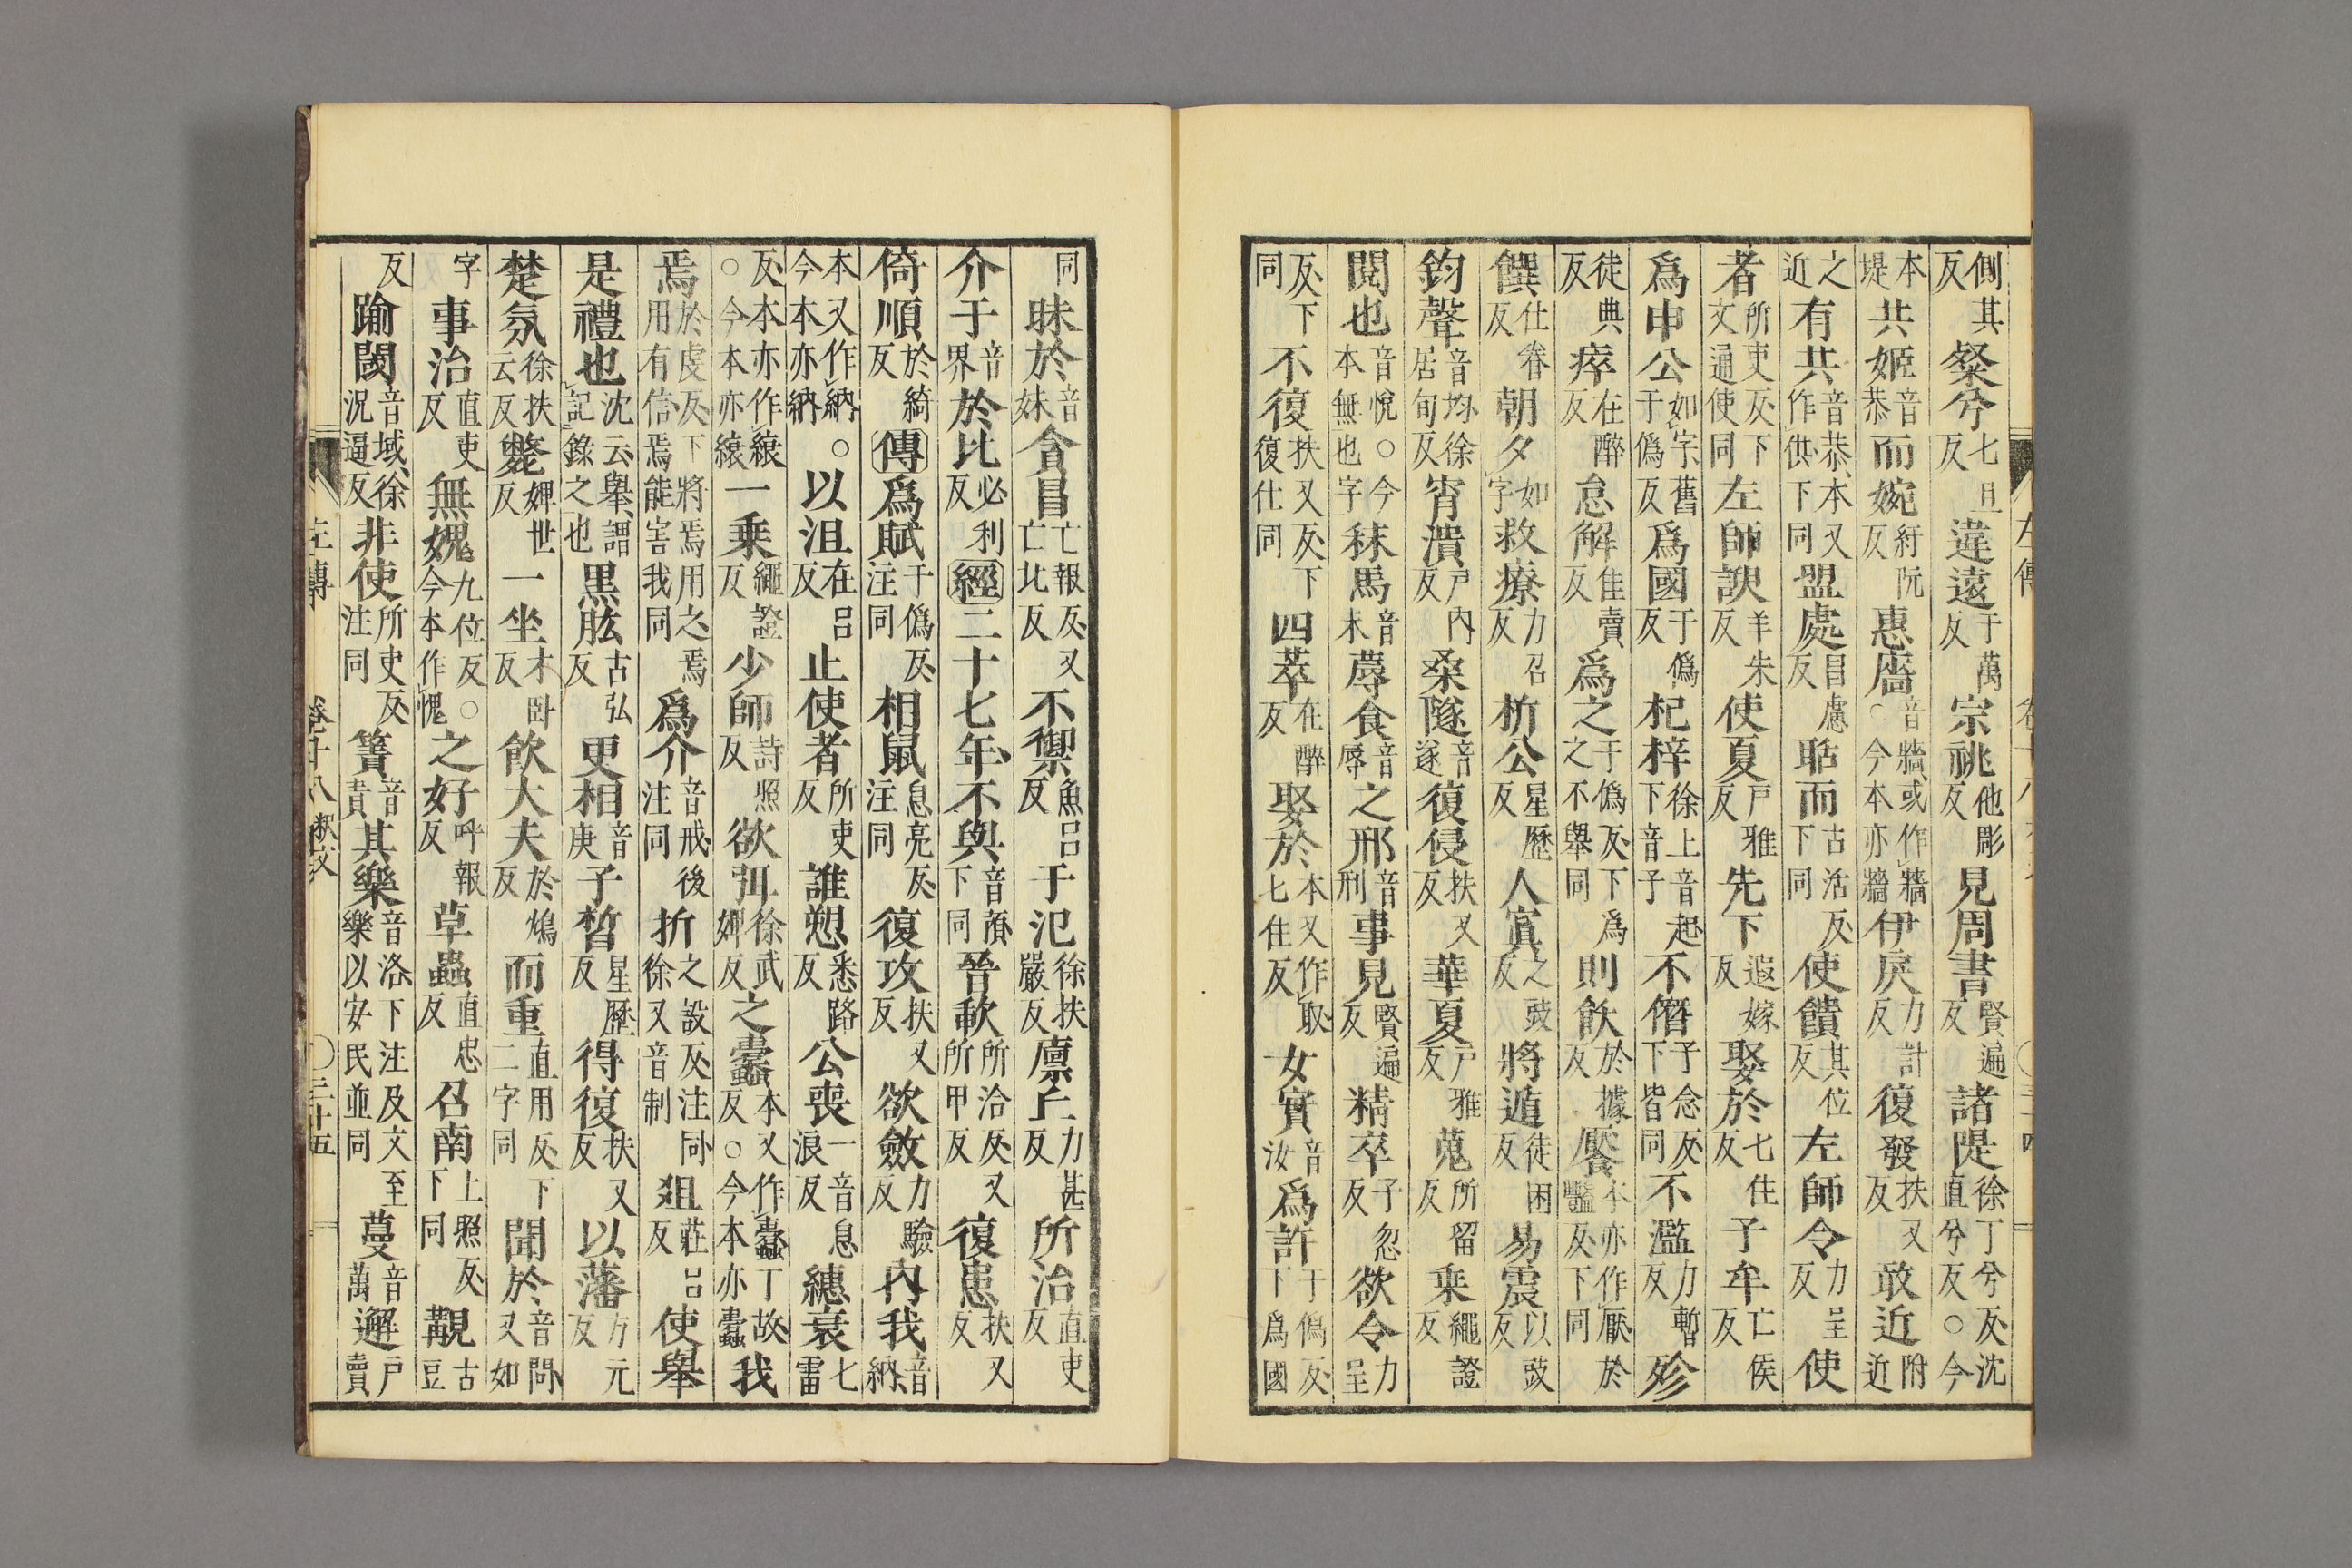 側其反粲兮七旦反違遠于萬反宗祧他彫反見周書賢遍反諸隄徐丁兮反沈直兮反○今
本堤共姬音恭而婉紆阮反惠牆音牆或作牆○今本亦牆伊戾力計反復發扶又反敢近附近
之近有共音恭本又作供下同盟處昌慮反聒而古活反下同使饋其位反左師令力呈反使
者所吏反下文通使同左師諛羊朱反使夏戶雅反先下遐嫁反娶於七住反子牟亡侯反
爲申公如字舊于僞反爲國于僞反杞梓徐上音起下音子不僭子念反下皆同不濫力暫反殄
徒典反瘁在醉反怠解佳賣反爲之于僞反下爲之不舉同則飫於據反饜本亦作厭於豔反下同
饌仕眷反朝夕如字救療力召反析公星歷反人寘之豉反將遁徒困反易震以豉反
鈞聲音均徐居旬反宵潰戶內反桑隧音遂復侵扶又反華夏戶雅反蒐所留反乗繩證反
閱也音悅○今本無也字秣馬音末蓐食音辱之邢音刑事見賢遍反精卒子忽反欲令力呈
反下同不復扶又反下復仕同四萃在醉反娶於本又作取七住反女實音汝爲許于僞反下爲國
同昧於音妹貪冒亡報反又亡北反不禦魚呂反于氾徐扶嚴反廩丘力甚反所治直吏反
介于音界於比必利反經二十七年不與音預下同晉歃所洽反又所甲反復患扶又反
倚順於綺反傳爲賦于僞反注同相鼠息亮反注同復攻扶又反欲斂力驗反內我音納
本又作納○今本亦納以沮在呂反止使者所吏反誰愬悉路反公喪一音息浪反繐衰七雷
反本亦作繐○今本亦繐一乗繩證反少師詩照反欲弭徐武婢反之蠹本又作蠹丁故反○今本亦蠹我
焉於虔反下將焉用之焉用有信焉能害我同爲介音戒後注同折之設反注同徐又音制俎莊呂反使舉
是禮也沈云舉謂記錄之也黑肱古弘反更相音庚子晳星歷反得復扶又反以藩方元反
楚氛徐扶云反斃婢世反一坐才卧反飲大夫於鴆反而重直用反下二字同聞於音問又如
字事治直吏反無媿九位反○今本作愧之好呼報反草蟲直忠反召南上照反下同覯古豆
反踰閾音域徐況逼反非使所吏反注同簀音責其樂音洛下注及文至樂以安民並同蔓音萬邂戶賣
左傳 卷十八釈文 ○三十五